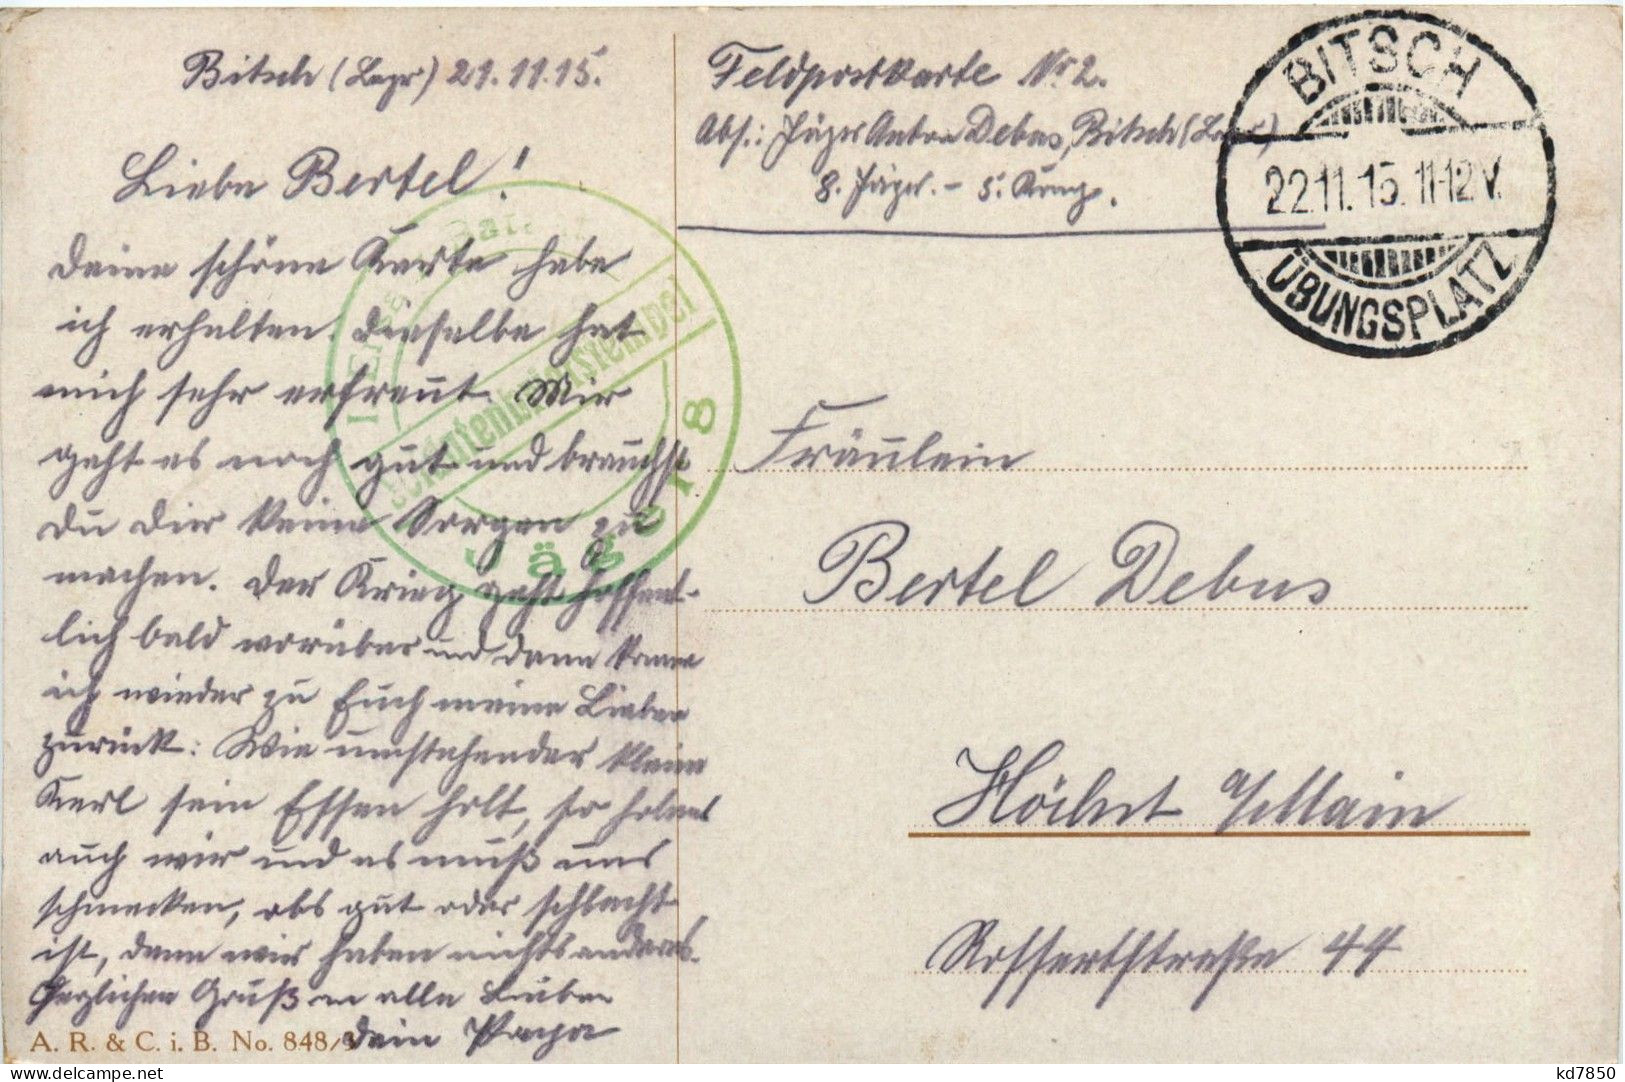 Bitsch (Lager) 21.11.15.
Liebe Bertel!
Deine schöne Karte habe
ich erhalten. Dieselbe hat
mich sehr erfreut. Mir
geht es noch gut und brauchst
Du Dir keine Sorgen zu
machen. Der Krieg geht hoffent-
lich bald vorüber und dann komme
ich wieder zu Euch meine Lieben
zurück. Wie umstehender kleine
Kerl sein Essen holt, so holen
auch wir und es muß uns
schmecken, obs gut oder schlecht
ist, denn wir haben nichts anderes.
Herzlichen Gruß an alle Lieben
Dein Papa
A. R. & C. i. B. No. 848/3
Feldpostkarte Nr 2.
Abs.: Jäger Anton Debus, Bitsch (Lager)
8. Jäger. - 5. Komp.
BITSCH
22.11.15. 11-12 V.
ÜBUNGSPLATZ
Jäger 8
Fräulein
Bertel Debus
Höchst a/Main
Rossertstraße 44
kd7850